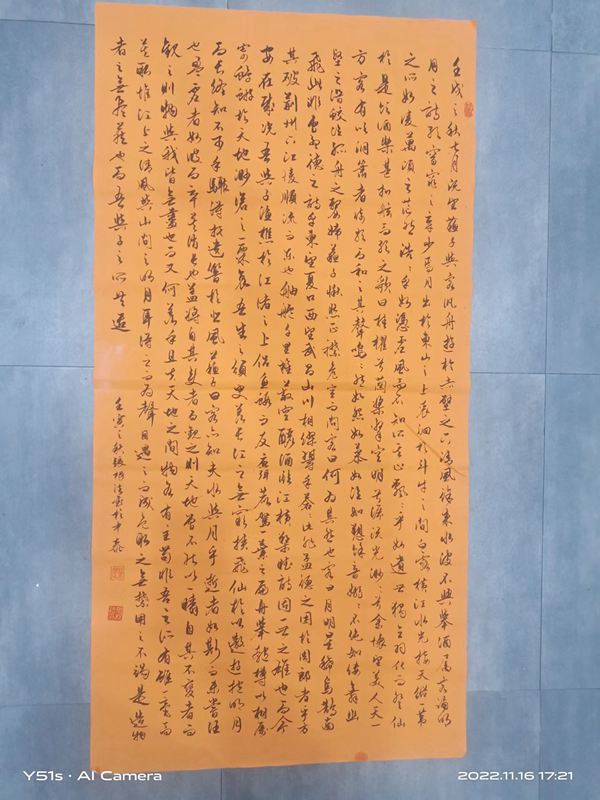 壬戌之秋七月既望蘇子與客汎舟遊於赤壁之下清風徐來水波不興舉酒屬客誦明
月之詩歌窈窕之章少焉月出於東山之上徘徊於斗牛之間白露橫江水光接天縱一葦
之所如凌萬頃之茫然浩浩乎如憑虛御風而不知所止飄飄乎如遺世獨立羽化而登仙
於是飲酒樂甚扣舷而歌之歌曰桂櫂兮蘭槳擊空明兮泝流光渺渺兮余懷望美人天一
方客有吹洞簫者倚歌而和之其聲嗚嗚然如怨如慕如泣如訴餘音嫋嫋不絕如縷舞幽
壑之潛蛟泣孤舟之嫠婦蘇子愀然正襟危坐而問客曰何為其然也客曰月明星稀烏鵲南
飛此非曹孟德之詩乎東望夏口西望武昌山川相繆鬱乎蒼蒼此非孟德之困於周郎者乎方
其破荊州下江陵順流而東也舳艫千里旌蔽空釃酒臨江橫槊賦詩固一世之雄也而今
安在哉況吾與子漁樵於江渚之上侶魚蝦而友麋鹿駕一葉之扁舟舉匏樽以相屬
寄蜉蝣於天地渺滄之一粟哀吾生之須臾羨長江之無窮挾飛仙於以遨遊抱明月
而長終知不可乎驟得託遺響於悲風蘇子曰客亦知夫水與月乎逝者如斯而未嘗往
也盈虛者如彼而卒莫消長也蓋將自其變者而觀之則天地曾不能以一瞬自其不變者而
觀之則物與我皆無盡也而又何羨乎且夫天地之間物各有主苟非吾之所有雖一毫而
莫取惟江上之清風與山間之明月耳得之而為聲目遇之而成色取之無禁用之不竭是造物
者之無盡藏也而吾與子之所共適
壬寅之秋張書於中泰
Y51s · AI Camera
2022.11.16 17:21